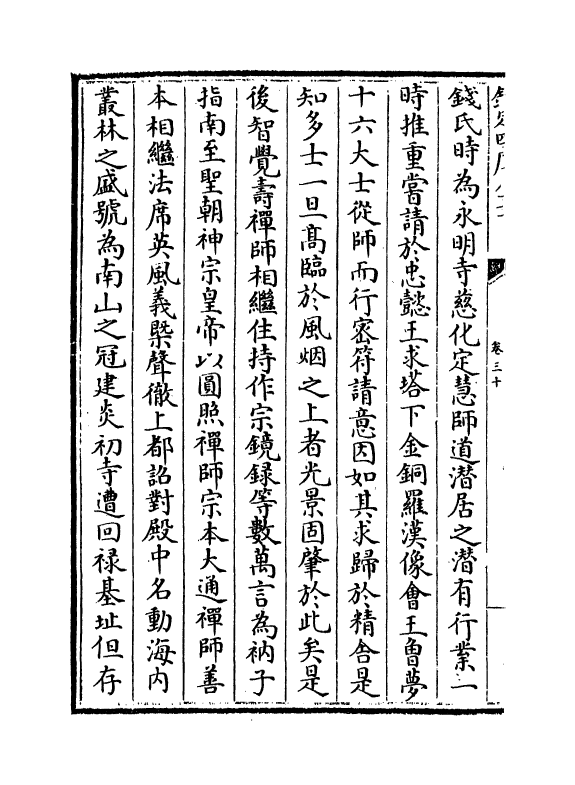 卷三十
錢氏時為永明寺慈化定慧師道潛居之潛有行業一
時推重嘗請於忠懿王求塔下金銅羅漢像會王魯夢
十六大士從師而行密符請意因如其求歸於精舍是
知多士一旦髙臨於風烟之上者光景固肇於此矣是
後智覺壽禪師相繼住持作宗鏡録等數萬言為衲子
指南至聖朝神宗皇帝以圓照禪師宗本大通禪師善
本相繼法席英風義槩聲徹上都詔對殿中名動海内
叢林之盛號為南山之冠建炎初寺遭回禄基址但存